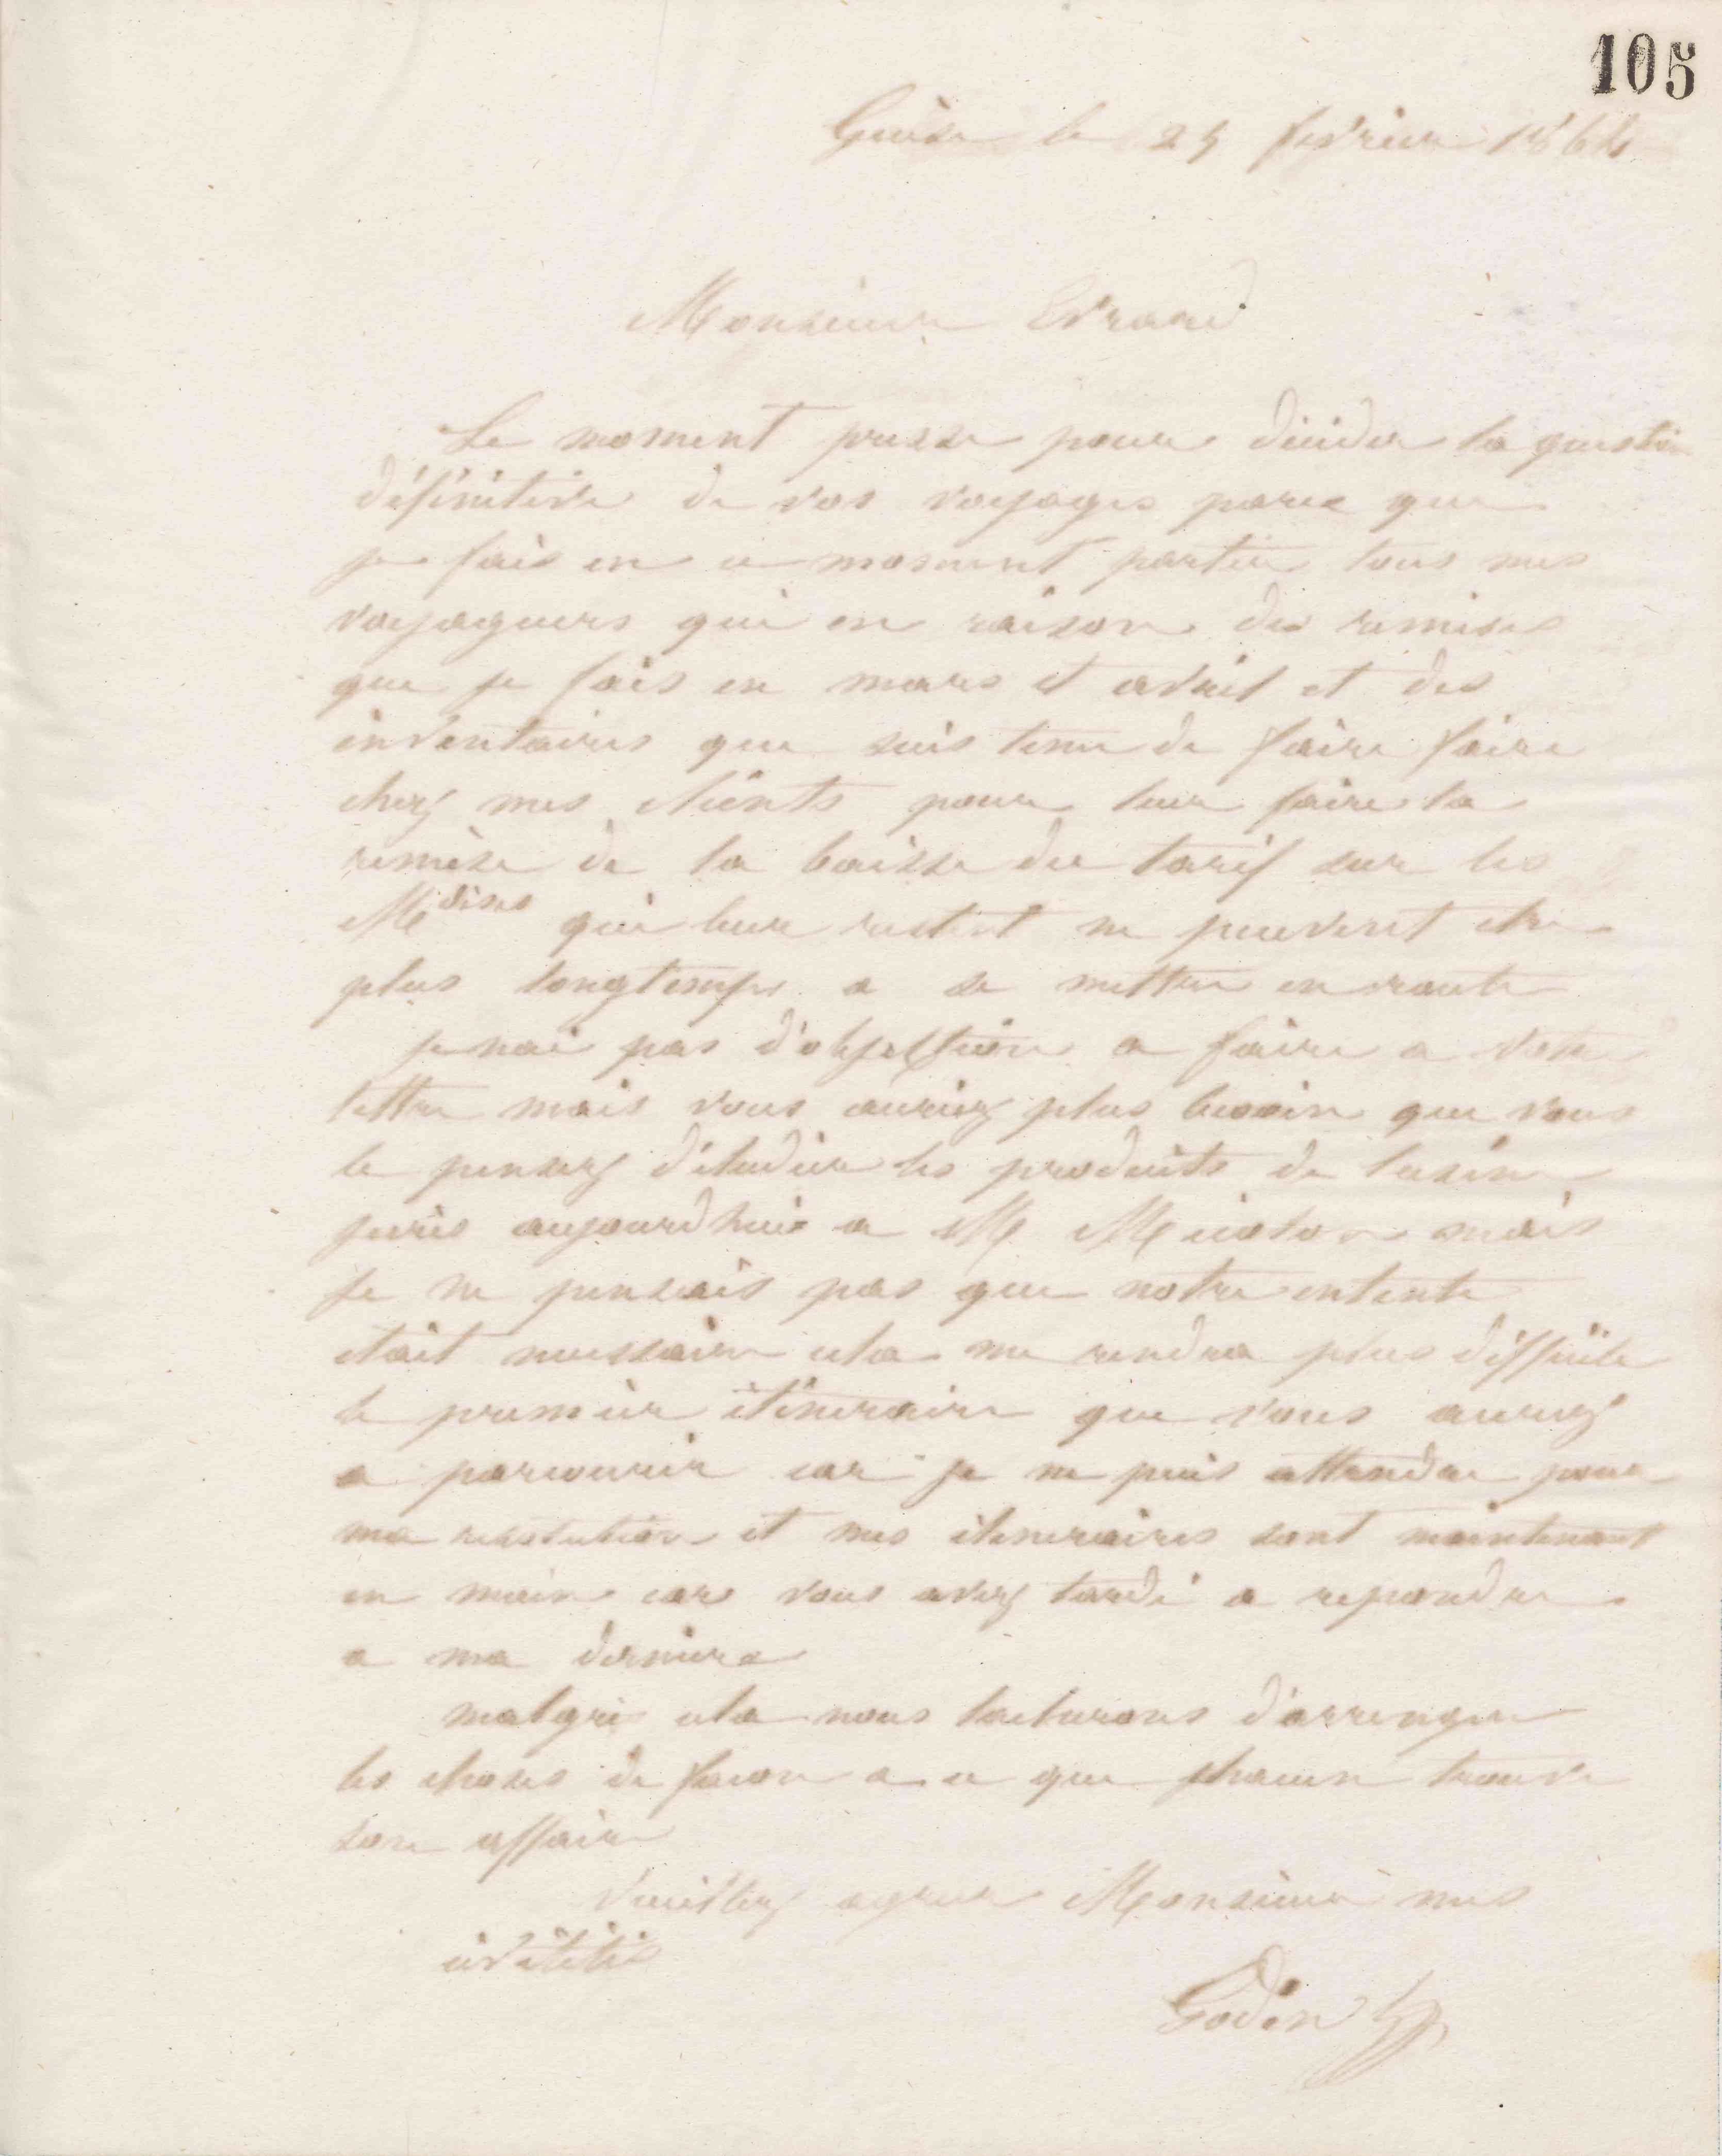 105
Guise le 25 février 1864
Monsieur Evrard
Le moment presse pour décider la question
définitive de vos voyages parce que
je fais en ce moment partir tous mes
voyageurs qui en raison des remises
que je fais en mars et avril et des
inventaires que suis tenu de faire faire
chez mes clients pour leur faire la
remise de la baisse du tarif sur les
Mdises qui leur restent ne peuvent etre
plus longtemps a se mettre en route
je nai pas d'objection a faire a votre
lettre mais vous auriez plus besoin que vous
le pensez d'étudier les produits de lusine
jecris aujourdhui a M mais
je ne pensais pas que notre entente
était necessaire cela me rendra plus difficile
le premier itineraire que vous aurez
a parcourir car je ne puis attendre pour
ma et mes itineraires sont maintenant
en main car vous avez tardé a repondre
a ma derniere
malgré cela nous tacherons d'arrenger
les choses de facon a ce que chacun trouve
son affaire
Veuillez agreer Monsieur mes
civilités
Godin